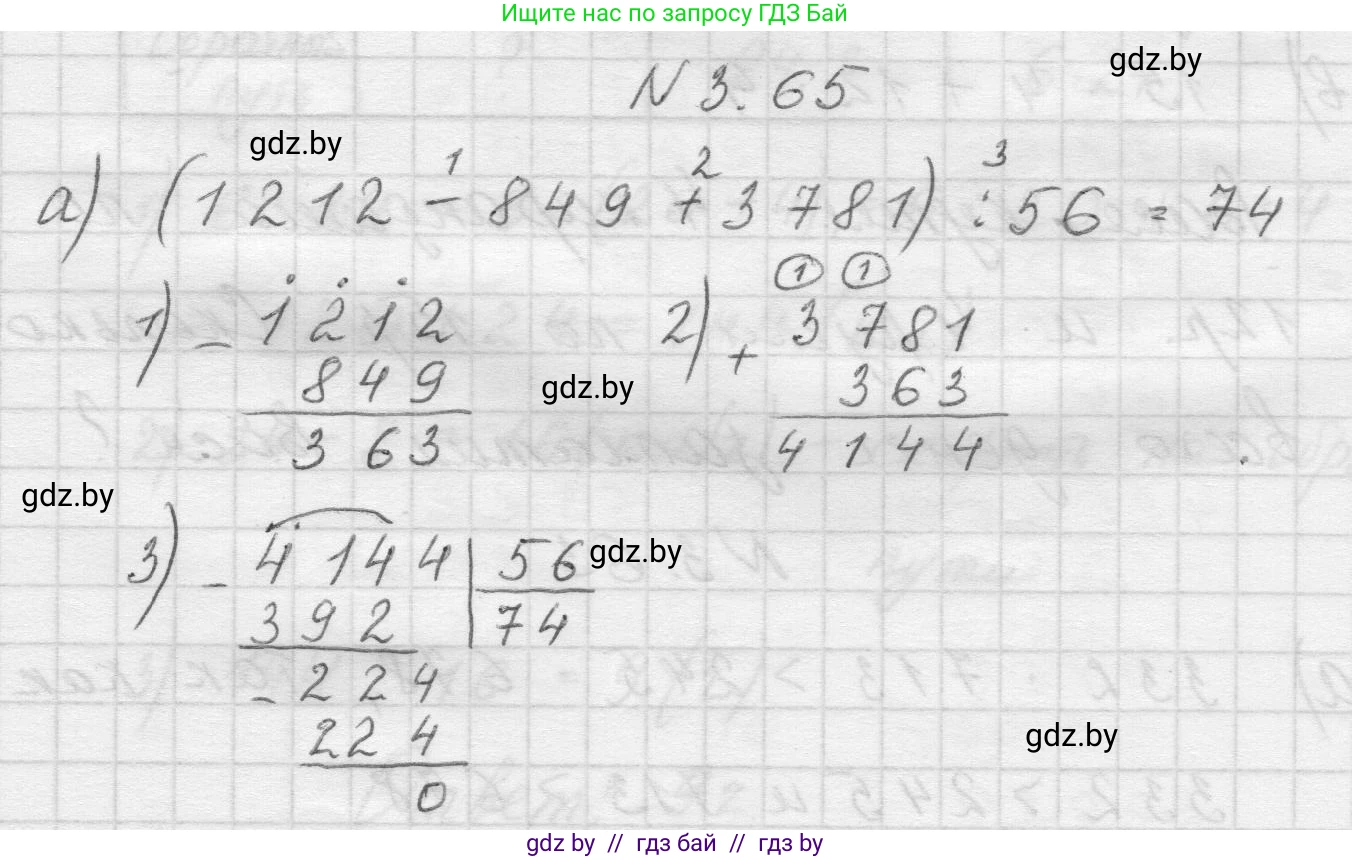 Ищите нас по запросу ГДЗ Бай
gdz.by
N 3.65
gdz.by
1 2 3
а) (1212 - 849 + 3781) : 56 = 74
1 1
1) - 1212 2) + 3781
849 gdz.by 363
363 4144
gdz.by
3) - 4144 56 gdz.by
392 74
- 224
224 gdz.by
0
gdz.by // гдз бай // гдз by